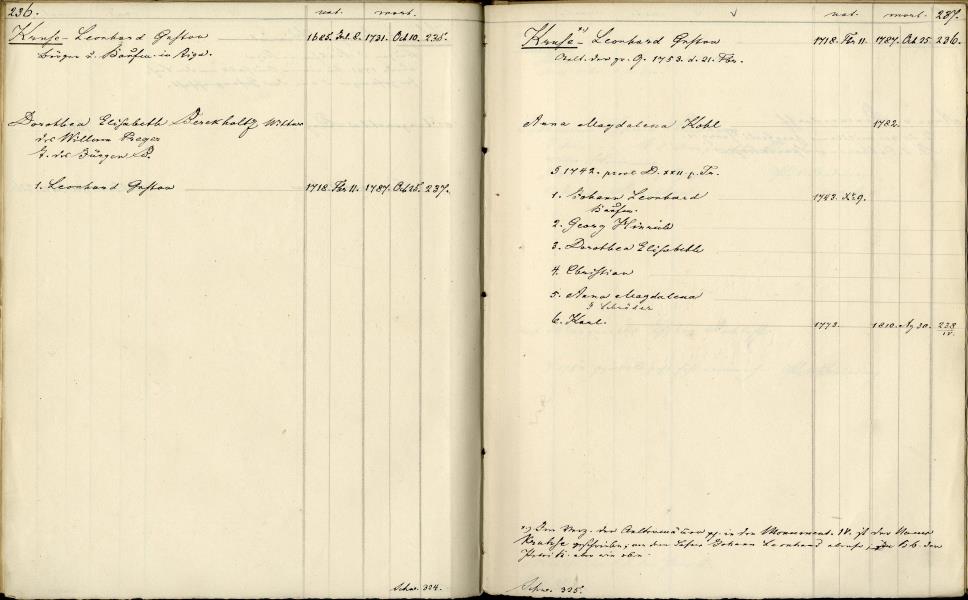 236. nat. mort.
Kruse - Leonhard Gustav 1685. Jul. 8. 1731. Oct 10. 235.
Bürger u. Kaufm. in Riga.
Dorothea Elisabeth Berckholtz, Wittwe
des Willem Preger
T. des Jürgen B.
1. Leonhard Gustav 1718. Fbr. 11. 1787. Oct 25. 237.
Schw. 324.
nat. mort. 237.
Kruse *) - Leonhard Gustav 1718. Fbr 11. 1787. Oct 25. 236.
Aelt. der gr. G. 1753. d. 21. Fbr.
Anna Magdalena Kohl 1782.
1742. procl. D. XXII. p. Tr.
1. Johann Leonhard 1743. Xbr 9.
Kaufm.
2. Georg Hinrich
3. Dorothea Elisabeth
4. Christian
5. Anna Magdalena
Schröder
6. Karl. 1773. 1810. Ag 30. 238
IV.
*) Im Verz. der Aeltermänner pp. in den Monument. IV. ist der Name
Krause geschrieben; an den Sohn Johann Leonhard ebenso; im K.b. der
Petri K. aber wie oben.
Schw. 325.